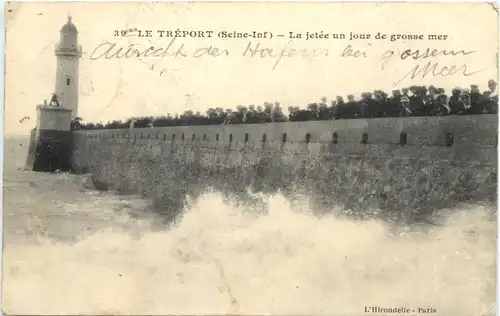 39 LE TRÉPORT (Seine-Inf) - La jetée un jour de grosse mer
Ansicht des Hafens bei grosser
Meer
L'Hirondelle - Paris